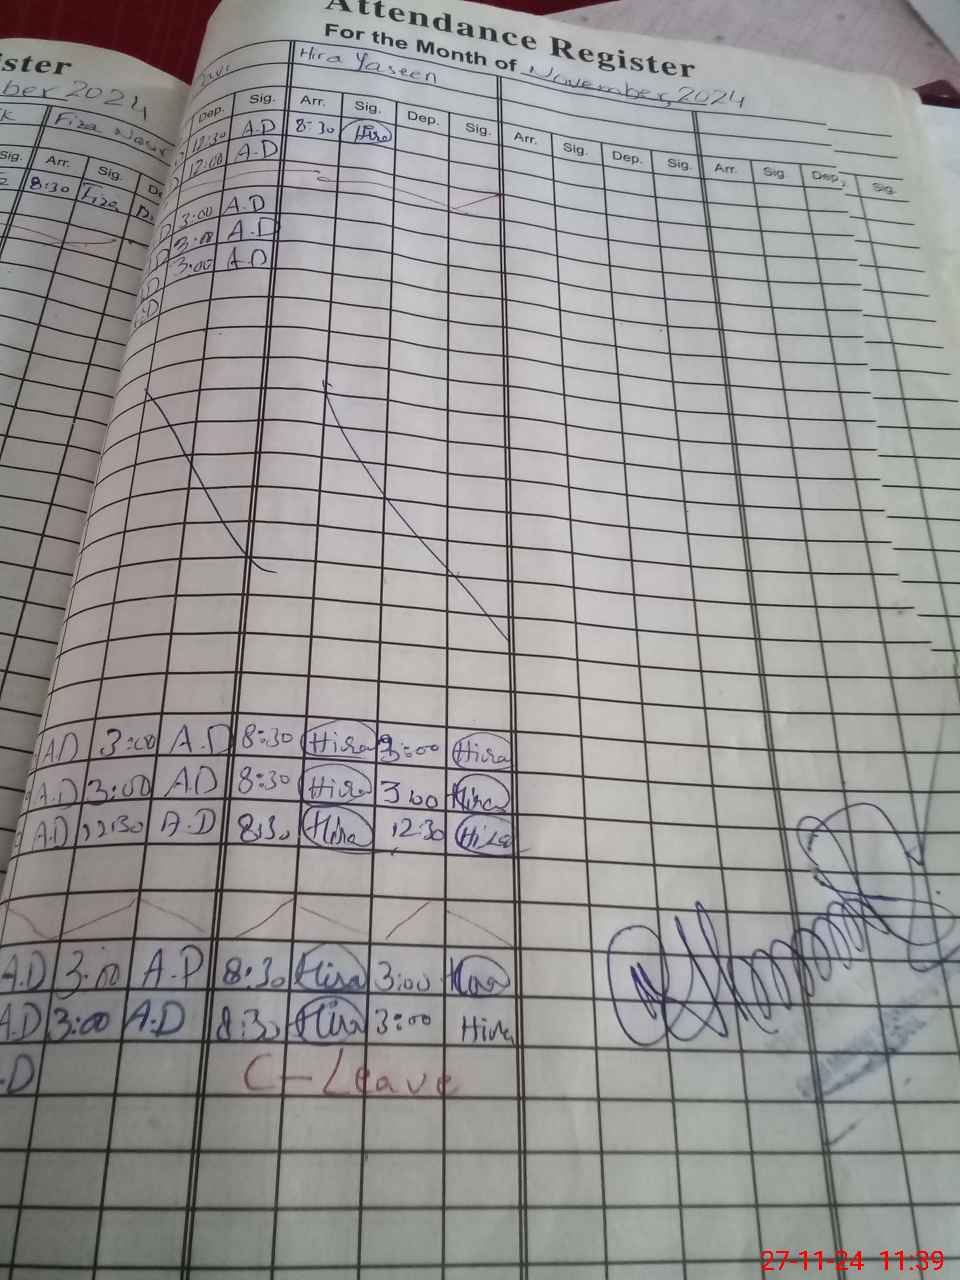 Attendance Register
For the Month of November, 2024
ster
ber 2024
Hira Yaseen
Fiza
Sig. Arr. Sig.
8:30 Fiza
Dep. Sig. Arr. Sig. Dep. Sig. Arr. Sig. Dep. Sig. Arr. Sig. Dep. Sig.
12:30 A.D 8:30 Hira
12:00 A.D
3:00 A.D
3:00 A.D
3:00 A.D
AD 3:00 A.D 8:30 Hira 3:00 Hira
A.D 3:00 AD 8:30 Hira 3:00 Hira
A.D 12:30 A.D 8:30 Hira 12:30 Hira
A.D 3:00 A.D 8:30 Hira 3:00 Hira
A.D 3:00 A.D 8:30 Hira 3:00 Hira
.D C-Leave
27-11-24 11:39